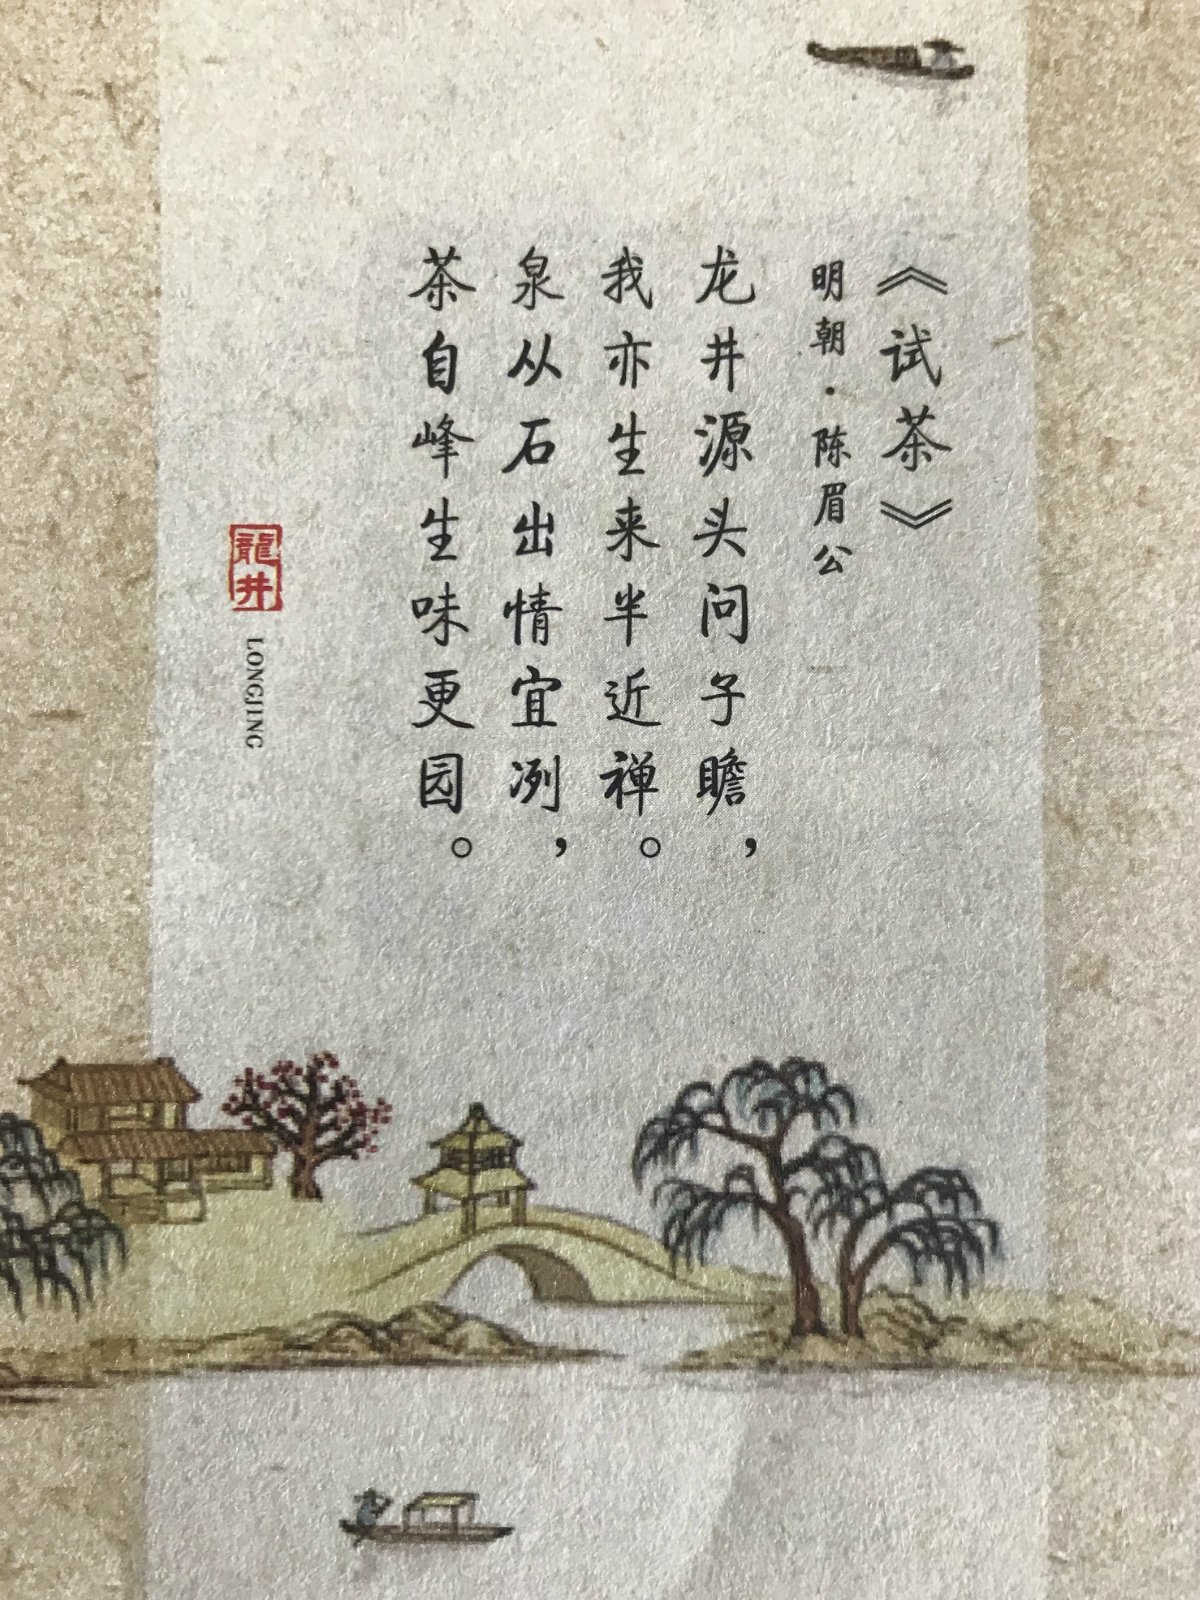 《试茶》
明朝·陈眉公
龙井源头问子瞻，
我亦生来半近禅。
泉从石出情宜冽，
茶自峰生味更园。
龍井
LONGJING